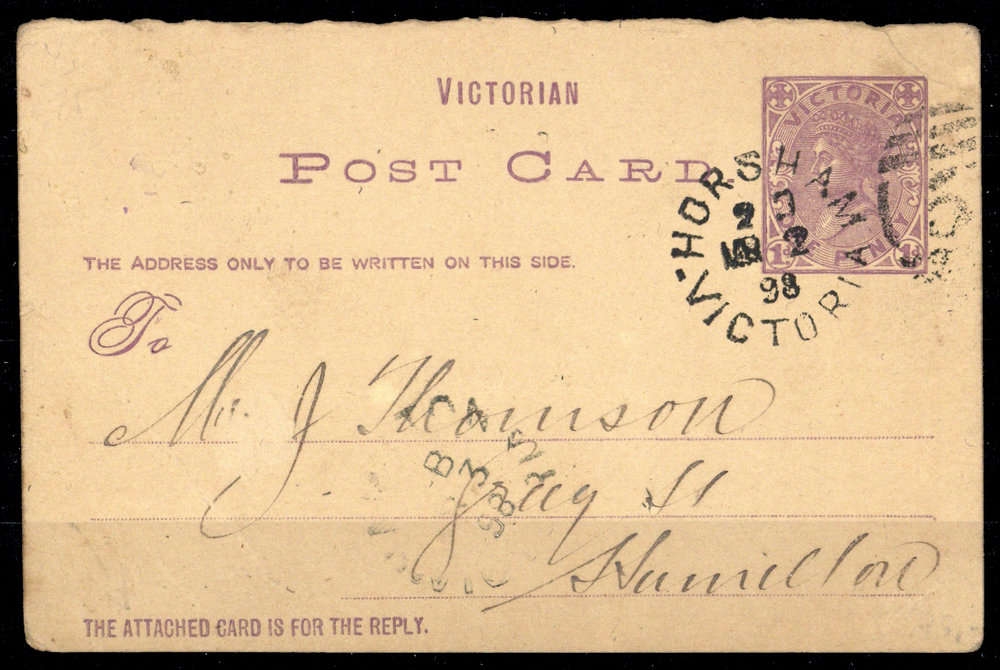 VICTORIAN
POST CARD
VICTORIA
ONE PENNY
1D 1D
HORSHAM
2
2
98
VICTORIA
THE ADDRESS ONLY TO BE WRITTEN ON THIS SIDE.
To
Mr. J Thomson
Gray St
Hamilton
THE ATTACHED CARD IS FOR THE REPLY.